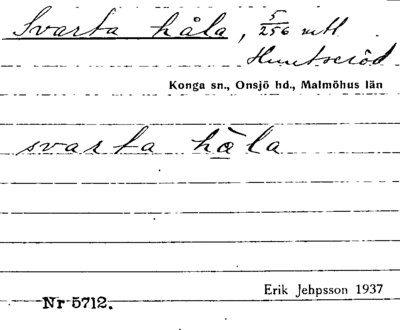 Svarta håla, 5/256 mtl
Huntseröd
Konga sn., Onsjö hd., Malmöhus län
svarta hå̀la
Erik Jehpsson 1937
Nr 5712.